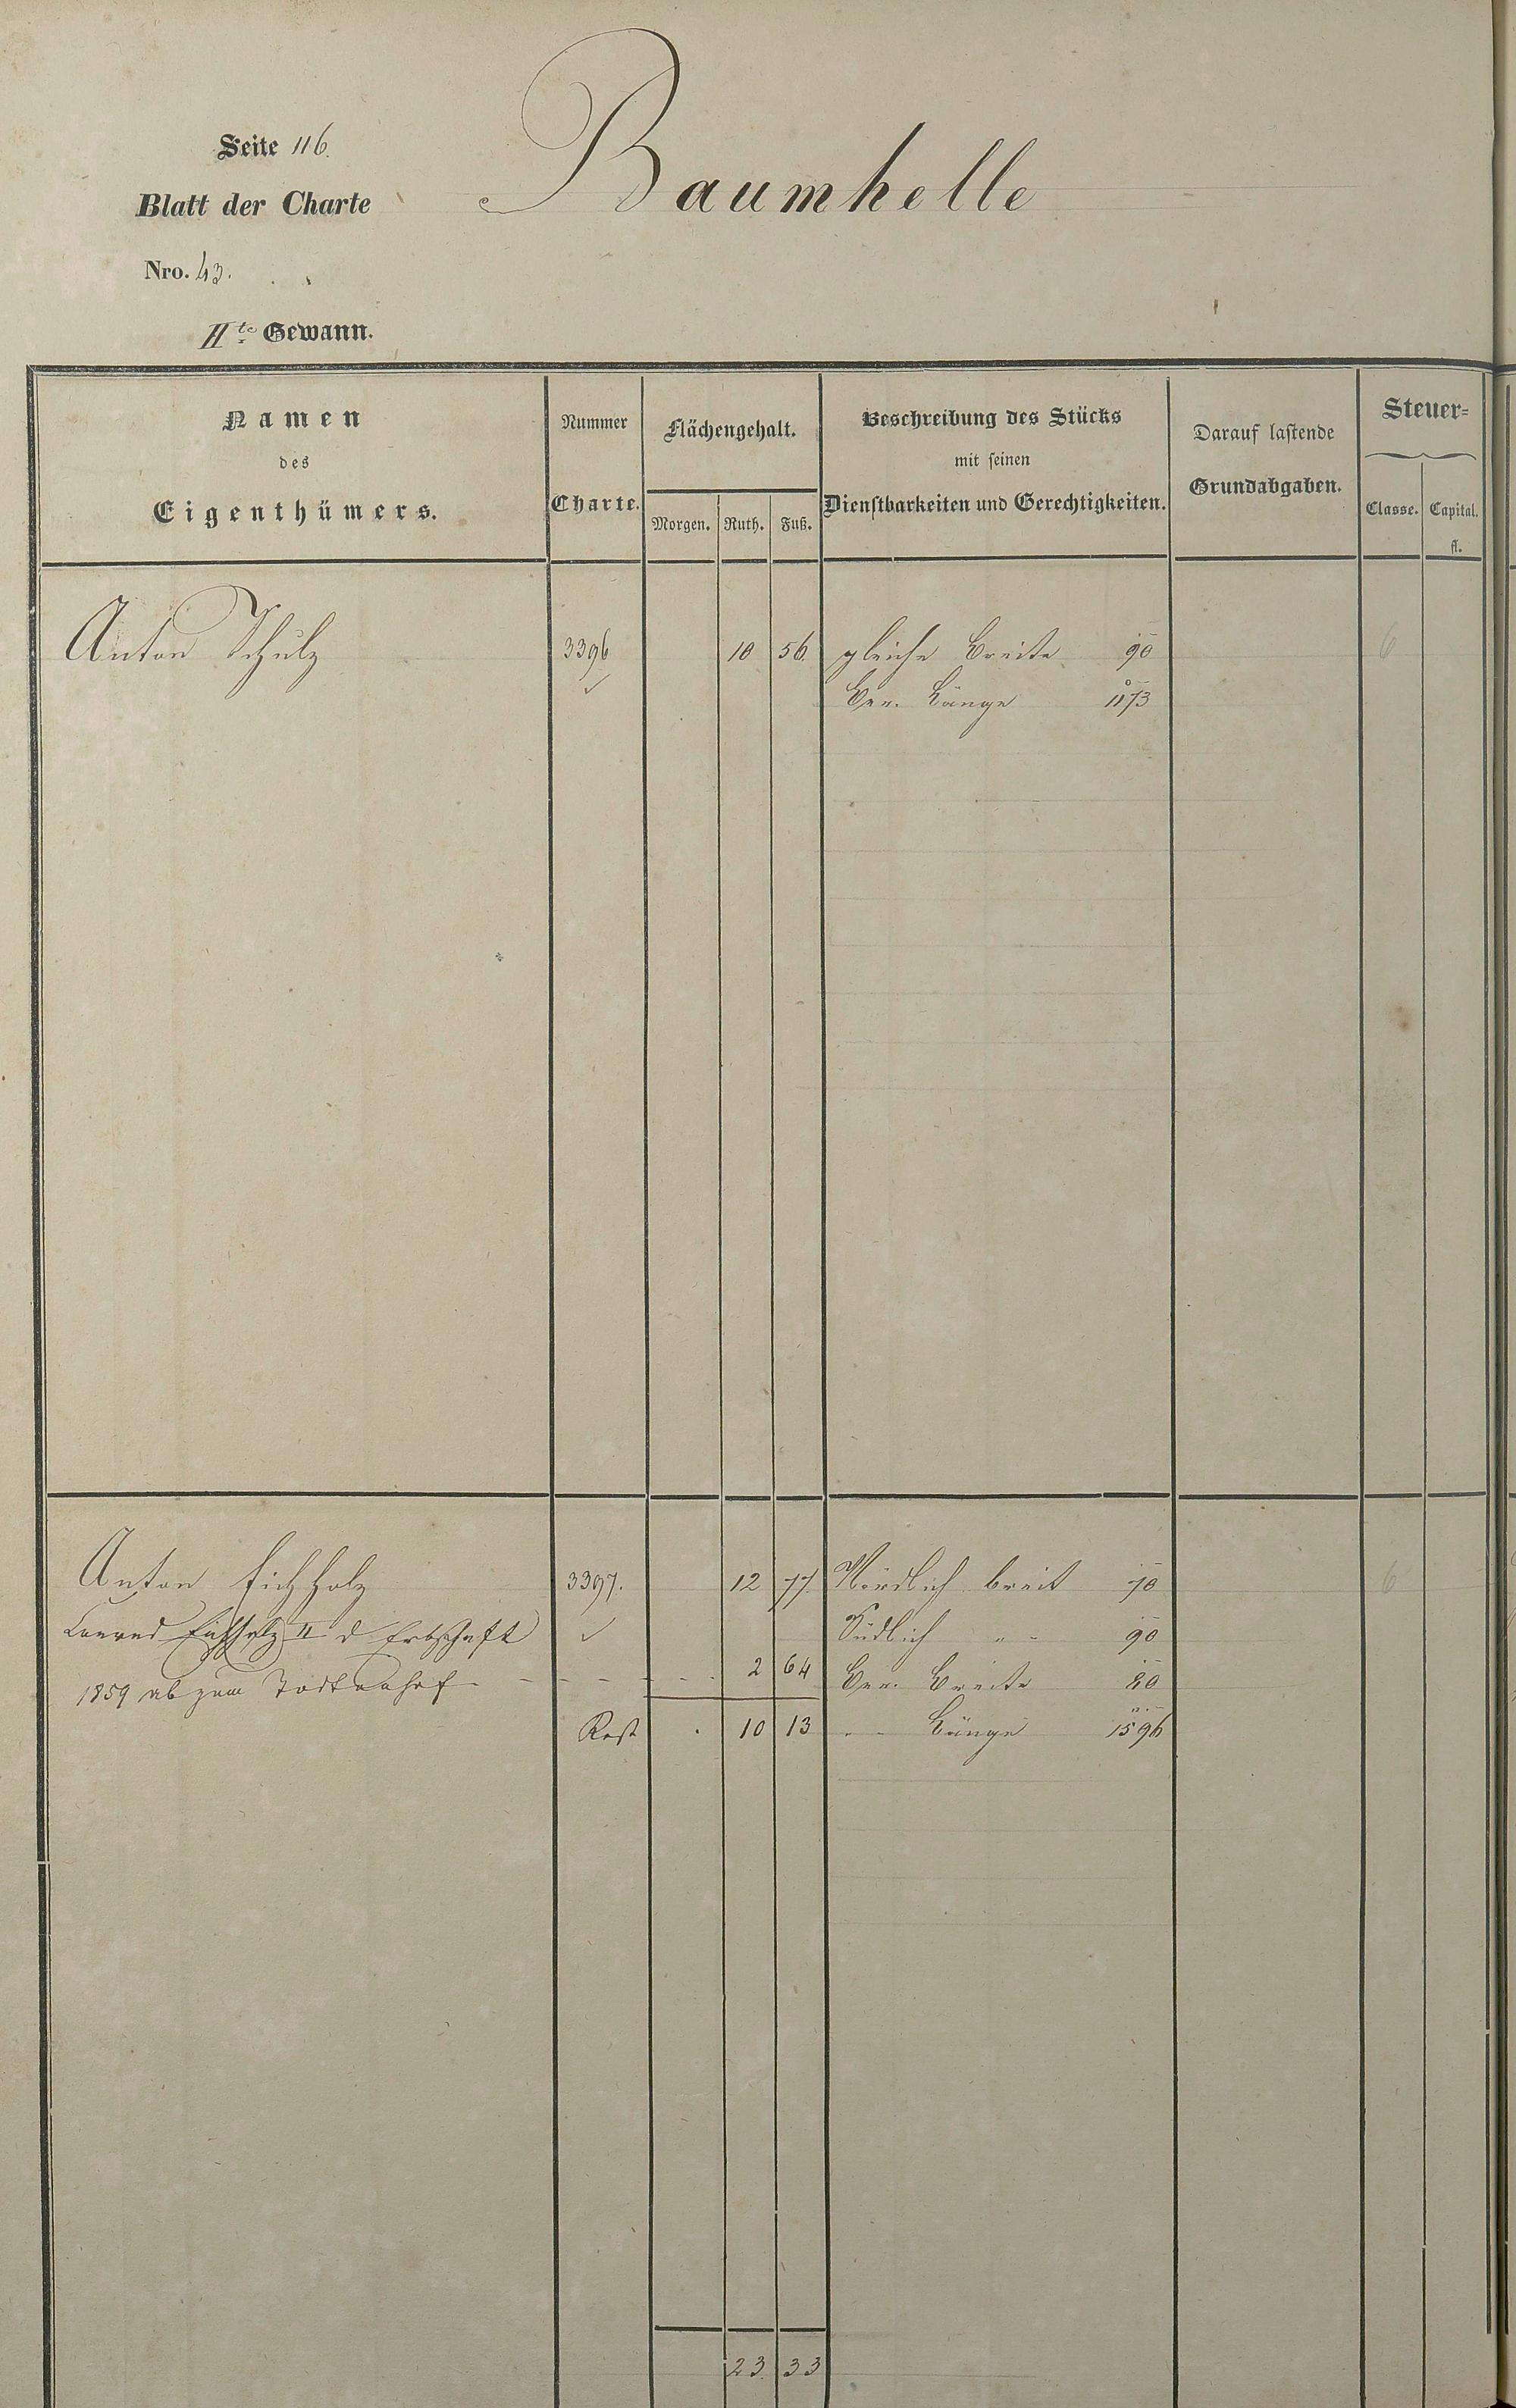 Seite 116.
Baumhelle
Blatt der Charte
Nro. 43.
IIte Gewann.
Namen
des
Eigenthümers.
Nummer
Charte.
Flächengehalt.
Morgen. Ruth. Fuß.
Beschreibung des Stücks
mit seinen
Dienstbarkeiten und Gerechtigkeiten.
Darauf lastende
Grundabgaben.
Steuer-
Classe. Capital.
fl.
Anton Schulz 3396 10 56. gleiche Breite 90 6
Ber. Länge 1173
Anton Eichholz 3397. 12 77. Nördlich breit 70 6
Conrad Eichholz II d Erbschaft Südlich " - 90
1859 ab zum Todtenhof - - - - - - 2 64 Ber. Breite 80
Rest . 10 13 - - Länge 1596
23. 33